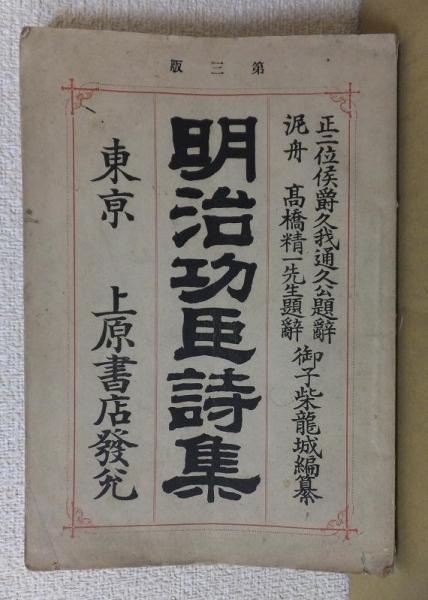 第三版
正二位侯爵久我通久公題辭
泥舟 髙橋精一先生題辭
御子柴龍城編纂
明治功臣詩集
東京 上原書店發兌